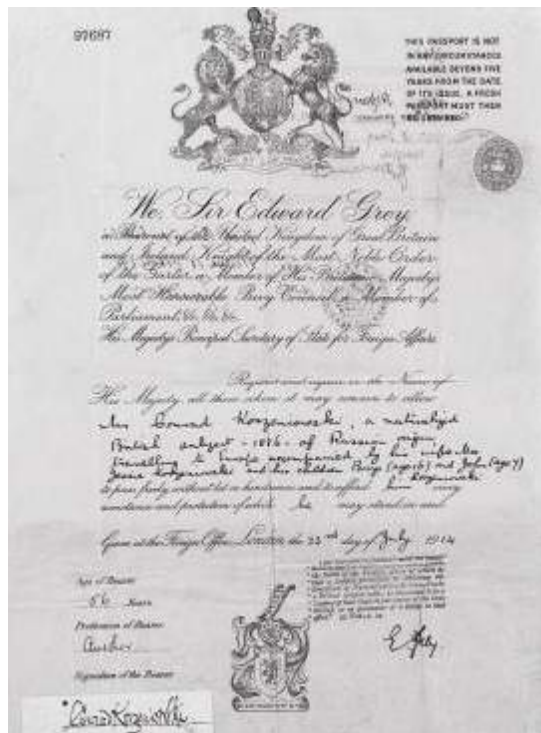 97687
THIS PASSPORT IS NOT
IN ANY CIRCUMSTANCES
AVAILABLE BEYOND FIVE
YEARS FROM THE DATE
OF ITS ISSUE. A FRESH
PASSPORT MUST THEN
BE OBTAINED.
We, Sir Edward Grey,
a Baronet of the United Kingdom of Great Britain
and Ireland, Knight of the Most Noble Order
of the Garter, a Member of His Britannic Majesty's
Most Honourable Privy Council, a Member of
Parliament, &c. &c. &c.
His Majesty's Principal Secretary of State for Foreign Affairs
Request and require in the Name of
His Majesty, all those whom it may concern to allow
Mr Conrad Korzeniowski, a naturalized
British subject - 1886 - of Russian origin,
travelling to Europe accompanied by his wife Mrs
Jessie Korzeniowski and his children Borys (age 16) and John (age 7)
Korzeniowski
to pass freely without let or hindrance and to afford him every
assistance and protection of which he may stand in need
Given at the Foreign Office, London, the 22nd day of July 1914
Age of Bearer
56 Years
Profession of Bearer
Author
Signature of the Bearer
E Grey
Conrad Korzeniowski